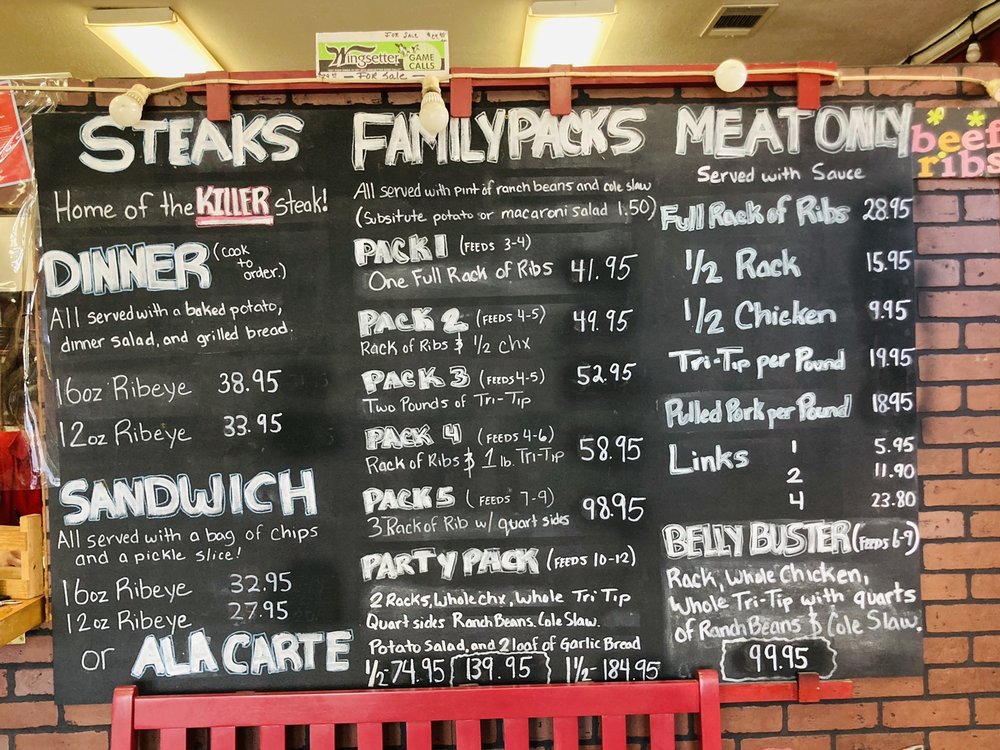 FOR SALE
Wingsetter
GAME CALLS
FOR SALE
STEAKS
Home of the KILLER steak!
DINNER (cook to order.)
All served with a baked potato,
dinner salad, and grilled bread.
16oz Ribeye 38.95
12oz Ribeye 33.95
SANDWICH
All served with a bag of chips
and a pickle slice!
16oz Ribeye 32.95
12oz Ribeye 27.95
or ALA CARTE
FAMILY PACKS
All served with pint of ranch beans and cole slaw
(Subsitute potato or macaroni salad 1.50)
PACK 1 (FEEDS 3-4)
One Full Rack of Ribs 41.95
PACK 2 (FEEDS 4-5) 49.95
Rack of Ribs & 1/2 chx
PACK 3 (FEEDS 4-5) 52.95
Two Pounds of Tri-Tip
PACK 4 (FEEDS 4-6) 58.95
Rack of Ribs & 1 lb. Tri-Tip
PACK 5 (FEEDS 7-9) 98.95
3 Rack of Rib w/ quart sides
PARTY PACK (FEEDS 10-12)
2 Racks, Whole Chx, Whole Tri Tip
Quart sides Ranch Beans, Cole Slaw.
Potato Salad, and 2 loaf of Garlic Bread
1/2-74.95 139.95 1 1/2-184.95
MEAT ONLY
Served with Sauce
Full Rack of Ribs 28.95
1/2 Rack 15.95
1/2 Chicken 9.95
Tri-Tip per Pound 19.95
Pulled Pork per Pound 18.95
Links 1 5.95
2 11.90
4 23.80
BELLY BUSTER (FEEDS 6-9)
Rack, Whole Chicken,
Whole Tri-Tip with quarts
of Ranch Beans & Cole Slaw.
99.95
beef
ribs